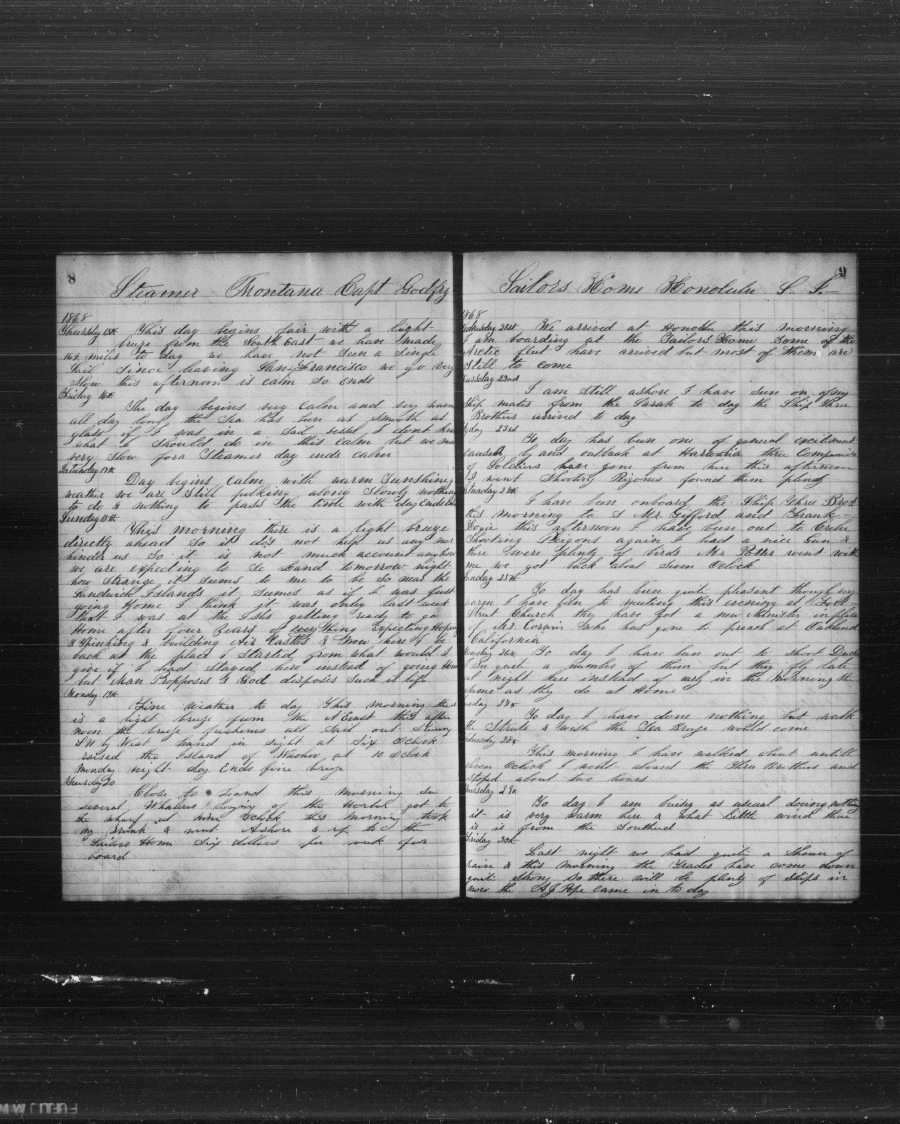 8
Steamer Montana Capt Godfry
1868
Thursday 15th This day begins fair with a light
breze from the South East we have made
162 miles to day we have not seen a single
Sail since leaving San Francisco we go very
slow this afternoon is calm so ends
Friday 16th
The day begins very calm and very warm
all day long the Sea has ben as smooth as
glass if I was in a Sail vessel I dont know
what I should do in this calm but we
very slow for a Steamer day ends calm
Saturday 17th
Day begins calm with warm Sunshiny
weather we are still poking along Slowly nothing
to do & nothing to pass the time with day Ends
Sunday 18th
This morning there is a light breze
directly ahead So it dis not help us any nor
hinder us So it is not much account anyhow
we are expecting to Se Land tomorrow night
how strange it seems to me to be so near the
Sandwich Islands it seems as if I was just
going Home I think it was only last week
that I was at the Isls getting ready to go
Home after four years of everything Expecting Hoping
& Thinking & building Air Castles & Now here I
back at the place I started from what would I
give if I had stayed here instead of going Home
but Man Propposes & God disposes Such is life
Monday 19th
Fine weather to day This morning there
is a light breze from the N East this after
noon the breze freshenes all Sail out Stearing
S W by West Land in sight at Six Oclock
raised the Island of at 10 Oclock
Monday night day Ends fine breze
Tuesday 20
Close to land this morning Se
several Whalers laying of the Harbor got to
the wharf at nine Oclock this morning took
my trunk & went Ashore & up to the
Sailors Home Six dollars per week for
board
9
Sailors Home Honolulu S. I.
1868
21st We arrived at Honolulu this morning
I am boarding at the Sailors Home Some of the
Arctic fleet have arrived but most of them are
Still to come
22nd
I am still ashore I have seen on of my
Ship mates from the Sarah to day the Ship Three
Brothers arived to day
23rd
To day has ben one of general excitment
caused by and outbreak at three Companies
of Soldiers have gone from here this afternoon
I went Shooting Pigones found them plenty
24th
I have ben onboard the Ship three Bros
this morning to S Mr Gifford and Frank
this afternoon I have ben out to
Shooting Pigons again I had a nice Gun &
there were plenty of birds Mr went with
me we got back about Seven Oclock
25th
To day has ben quite pleasant though very
warm I have ben to meeting this evening at Fort
Street Church they have got a new Minister in place
of Mr. Corwin who has gone to preach at Oakland
California
26th To day I have ben out to Shoot Ducks
I Se quite a number of them but they fly late
at night here instead of erly in the Morning the
same as they do at Home
27th
To day I have done nothing but walk
the Streets & wish the Sea Breze would come
28th
This morning I have walked about untill
Oclock I went aboard the Three Brothers and
stoped about two hours
29th
To day I am buisy as usual dooing nothing
it is very warm here & what little wind there
is is from the Southerd
Friday 30th
Last night we had quite a Shower of
rain & this morning the Trades have come down
quit strong so there will be plenty of ships in
now the Pope came in to day